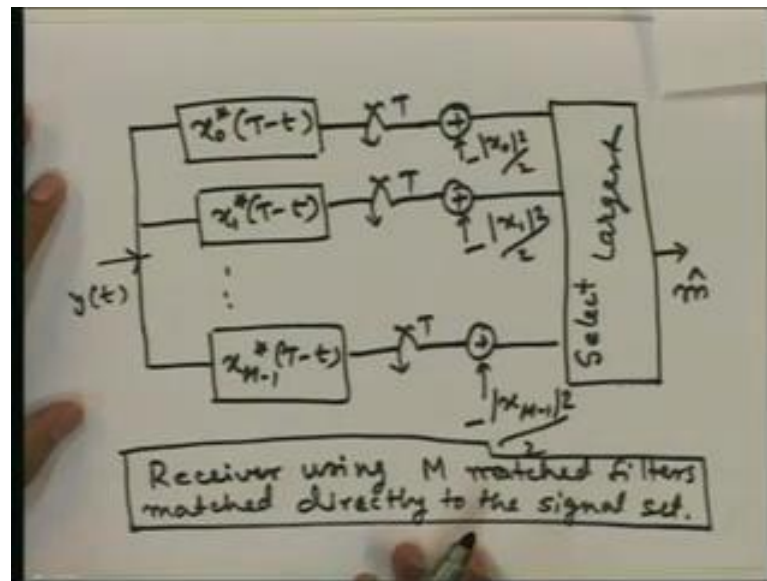 x₀*(T-t) T + -|x₀|²/2
x₁*(T-t) T + -|x₁|²/2
y(t)
⋮
x_{M-1}*(T-t) T + -|x_{M-1}|²/2
Select Largest
m̂
Receiver using M matched filters
matched directly to the signal set.